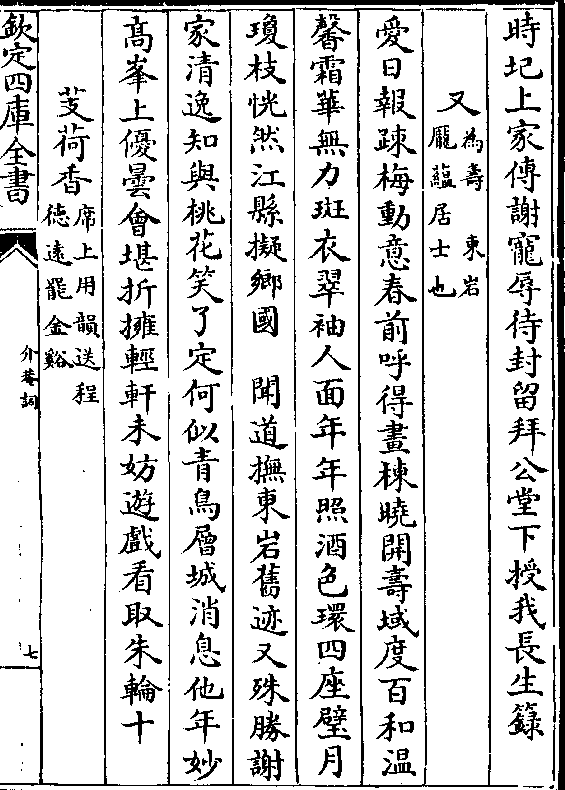 時圯上家傳謝寵辱待封留拜公堂下授我長生籙
又為壽東岩
龎藴居士也
愛日報疎梅動意春前呼得畫棟曉開壽域度百和温
馨霜華無力斑衣翠袖人面年年照酒色環四座璧月
瓊枝恍然江縣擬鄉國　聞道撫東岩舊迹又殊勝謝
家清逸知與桃花笑了定何似青鳥層城消息他年妙
髙峯上優曇會堪折擁輕軒未妨遊戲看取朱輪十
芰荷香席上用韻送程
德遠罷金谿
欽定四庫全書
介菴詞
七